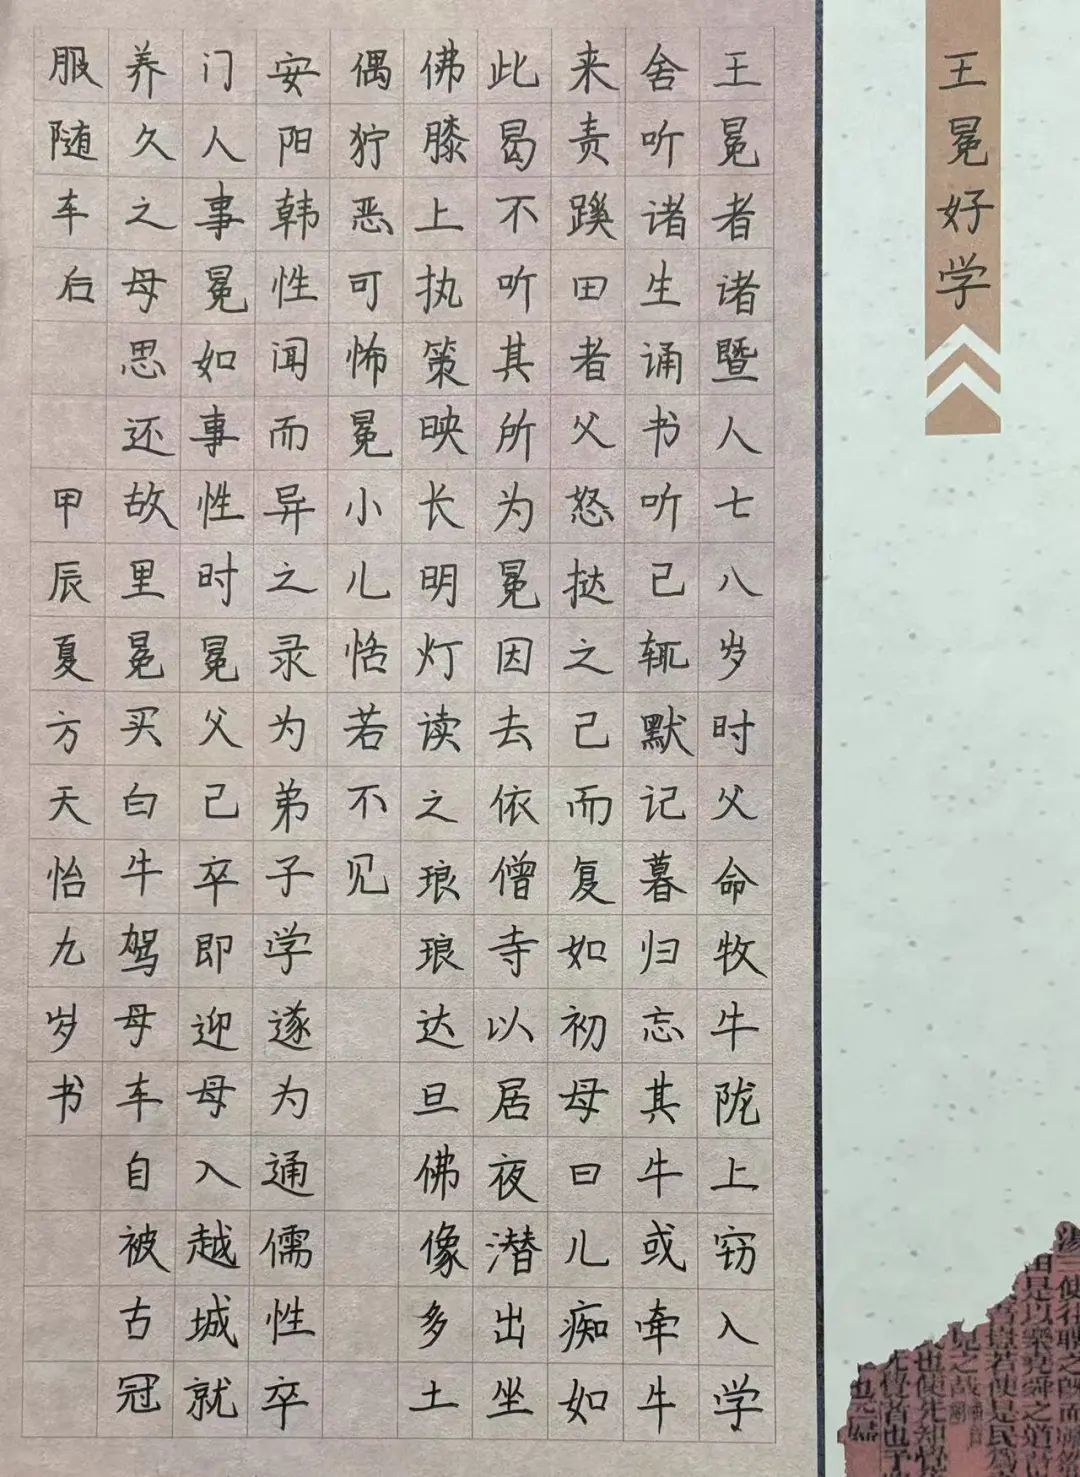 王冕好学
王冕者诸暨人七八岁时父命牧牛陇上窃入学
舍听诸生诵书听已辄默记暮归忘其牛或牵牛
来责蹊田者父怒挞之已而复如初母曰儿痴如
此曷不听其所为冕因去依僧寺以居夜潜出坐
佛膝上执策映长明灯读之琅琅达旦佛像多土
偶狞恶可怖冕小儿恬若不见
安阳韩性闻而异之录为弟子学遂为通儒性卒
门人事冕如事性时冕父已卒即迎母入越城就
养久之母思还故里冕买白牛驾母车自被古冠
服随车后 甲辰夏方天怡九岁书
使往聘之既而
是以樂堯舜之道
豈若使是民爲
見之哉
也使先知覺
覺者也予
也